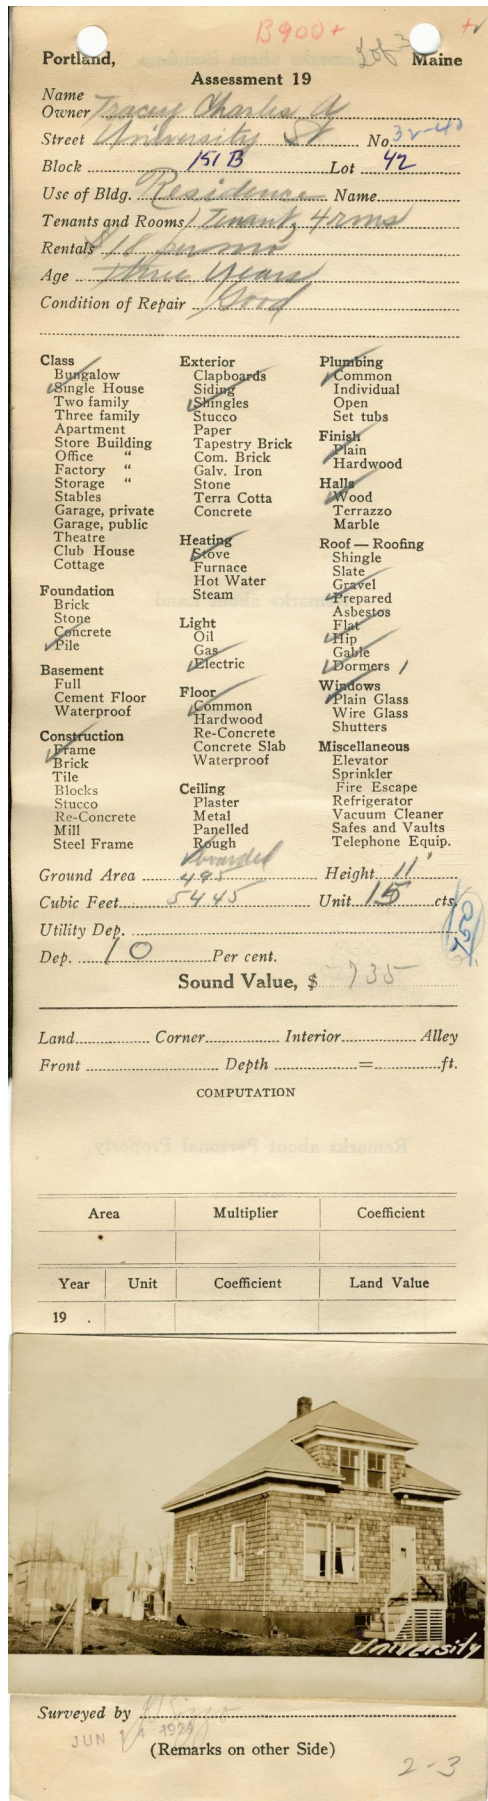 B900+
+
Portland, Maine
Assessment 19
Name
Owner Tracey Charles A
Street University St No. 32-40
Block 151 B Lot 42
Use of Bldg. Residence Name
Tenants and Rooms 1 Tenant, 4 rms
Rentals $18 per mo
Age Three years
Condition of Repair Good
Class
Bungalow
Single House
Two family
Three family
Apartment
Store Building
Office "
Factory "
Storage "
Stables
Garage, private
Garage, public
Theatre
Club House
Cottage
Foundation
Brick
Stone
Concrete
Pile
Basement
Full
Cement Floor
Waterproof
Construction
Frame
Brick
Tile
Blocks
Stucco
Re-Concrete
Mill
Steel Frame
Exterior
Clapboards
Siding
Shingles
Stucco
Paper
Tapestry Brick
Com. Brick
Galv. Iron
Stone
Terra Cotta
Concrete
Heating
Stove
Furnace
Hot Water
Steam
Light
Oil
Gas
Electric
Floor
Common
Hardwood
Re-Concrete
Concrete Slab
Waterproof
Ceiling
Plaster
Metal
Panelled
Rough
Plumbing
Common
Individual
Open
Set tubs
Finish
Plain
Hardwood
Halls
Wood
Terrazzo
Marble
Roof — Roofing
Shingle
Slate
Gravel
Prepared
Asbestos
Flat
Hip
Gable
Dormers 1
Windows
Plain Glass
Wire Glass
Shutters
Miscellaneous
Elevator
Sprinkler
Fire Escape
Refrigerator
Vacuum Cleaner
Safes and Vaults
Telephone Equip.
Ground Area 495 Height 11'
Cubic Feet 5445 Unit 15 cts.
Utility Dep.
Dep. 10 Per cent.
Sound Value, $ 735
Land Corner Interior Alley
Front Depth = ft.
COMPUTATION
Area Multiplier Coefficient
Year Unit Coefficient Land Value
19 .
University
Surveyed by
JUN 14 1924
(Remarks on other Side)
2-3